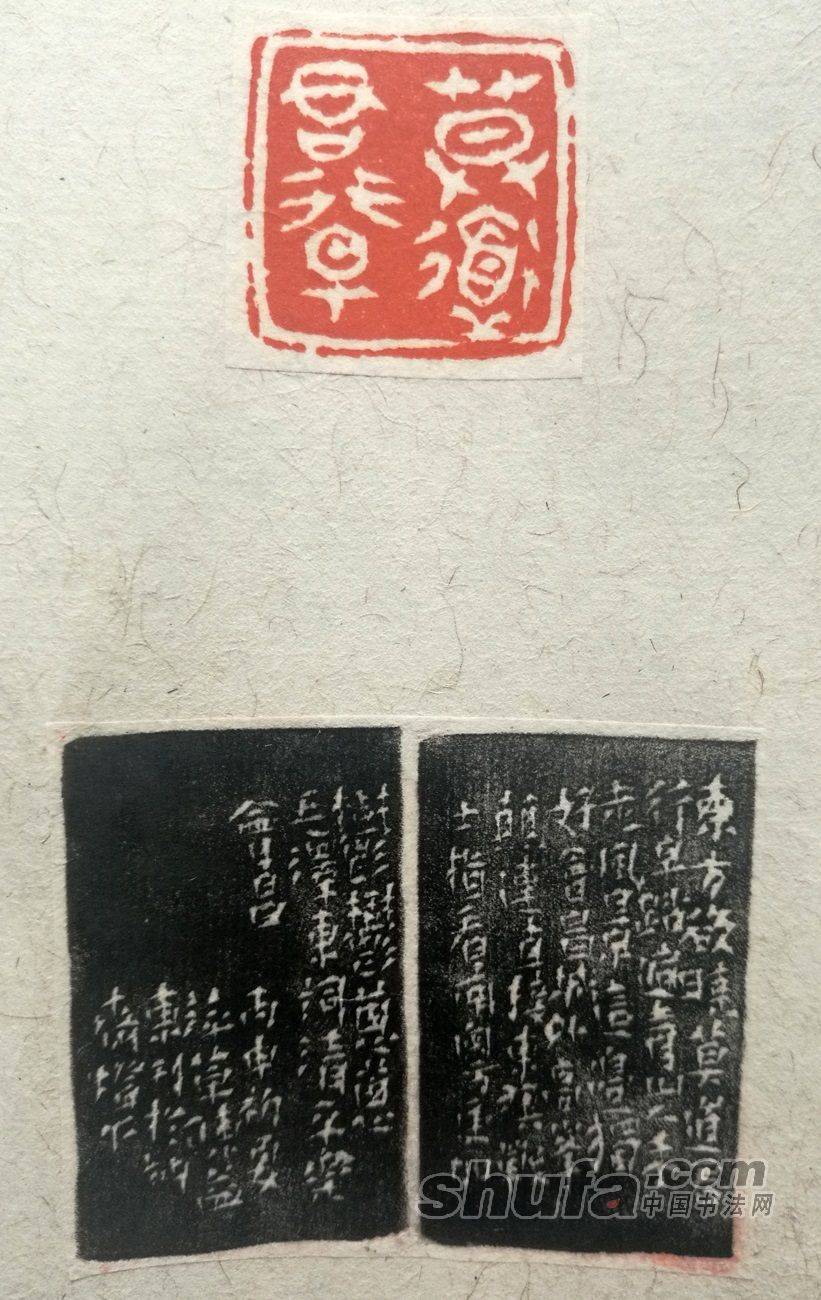 莫道
君行早
東方欲曉莫道君
行早踏遍青山人未
老風景這邊獨
好會昌城外高峰
顛連直接東溟戰
士指看南粵更加
鬱鬱葱葱
毛澤東詞清平樂
會昌
丙申初夏
shufa.com
中国书法网